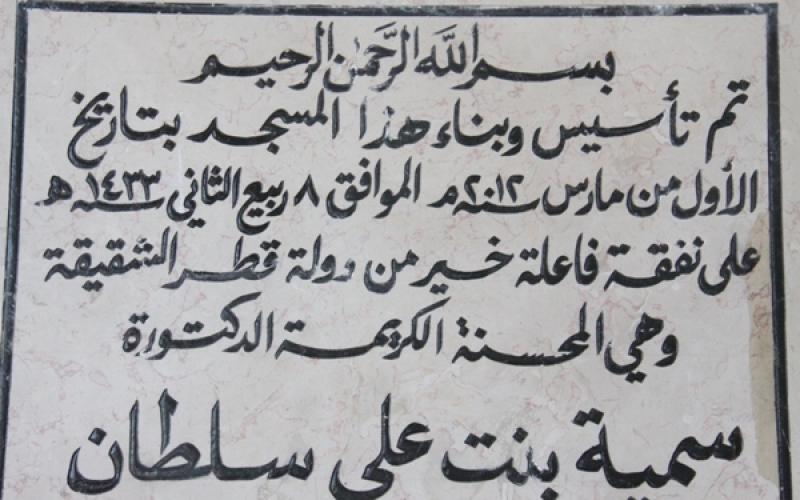 بسم الله الرحمن الرحيم
تم تأسيس وبناء هذا المسجد بتاريخ
الأول من مارس سنة ٢٠١٢م الموافق ٨ ربيع الثاني سنة ١٤٣٣ هـ
على نفقة فاعلة خير من دولة قطر الشقيقة
وهي المحسنة الكريمة الدكتورة
سمية بنت علي سلطان